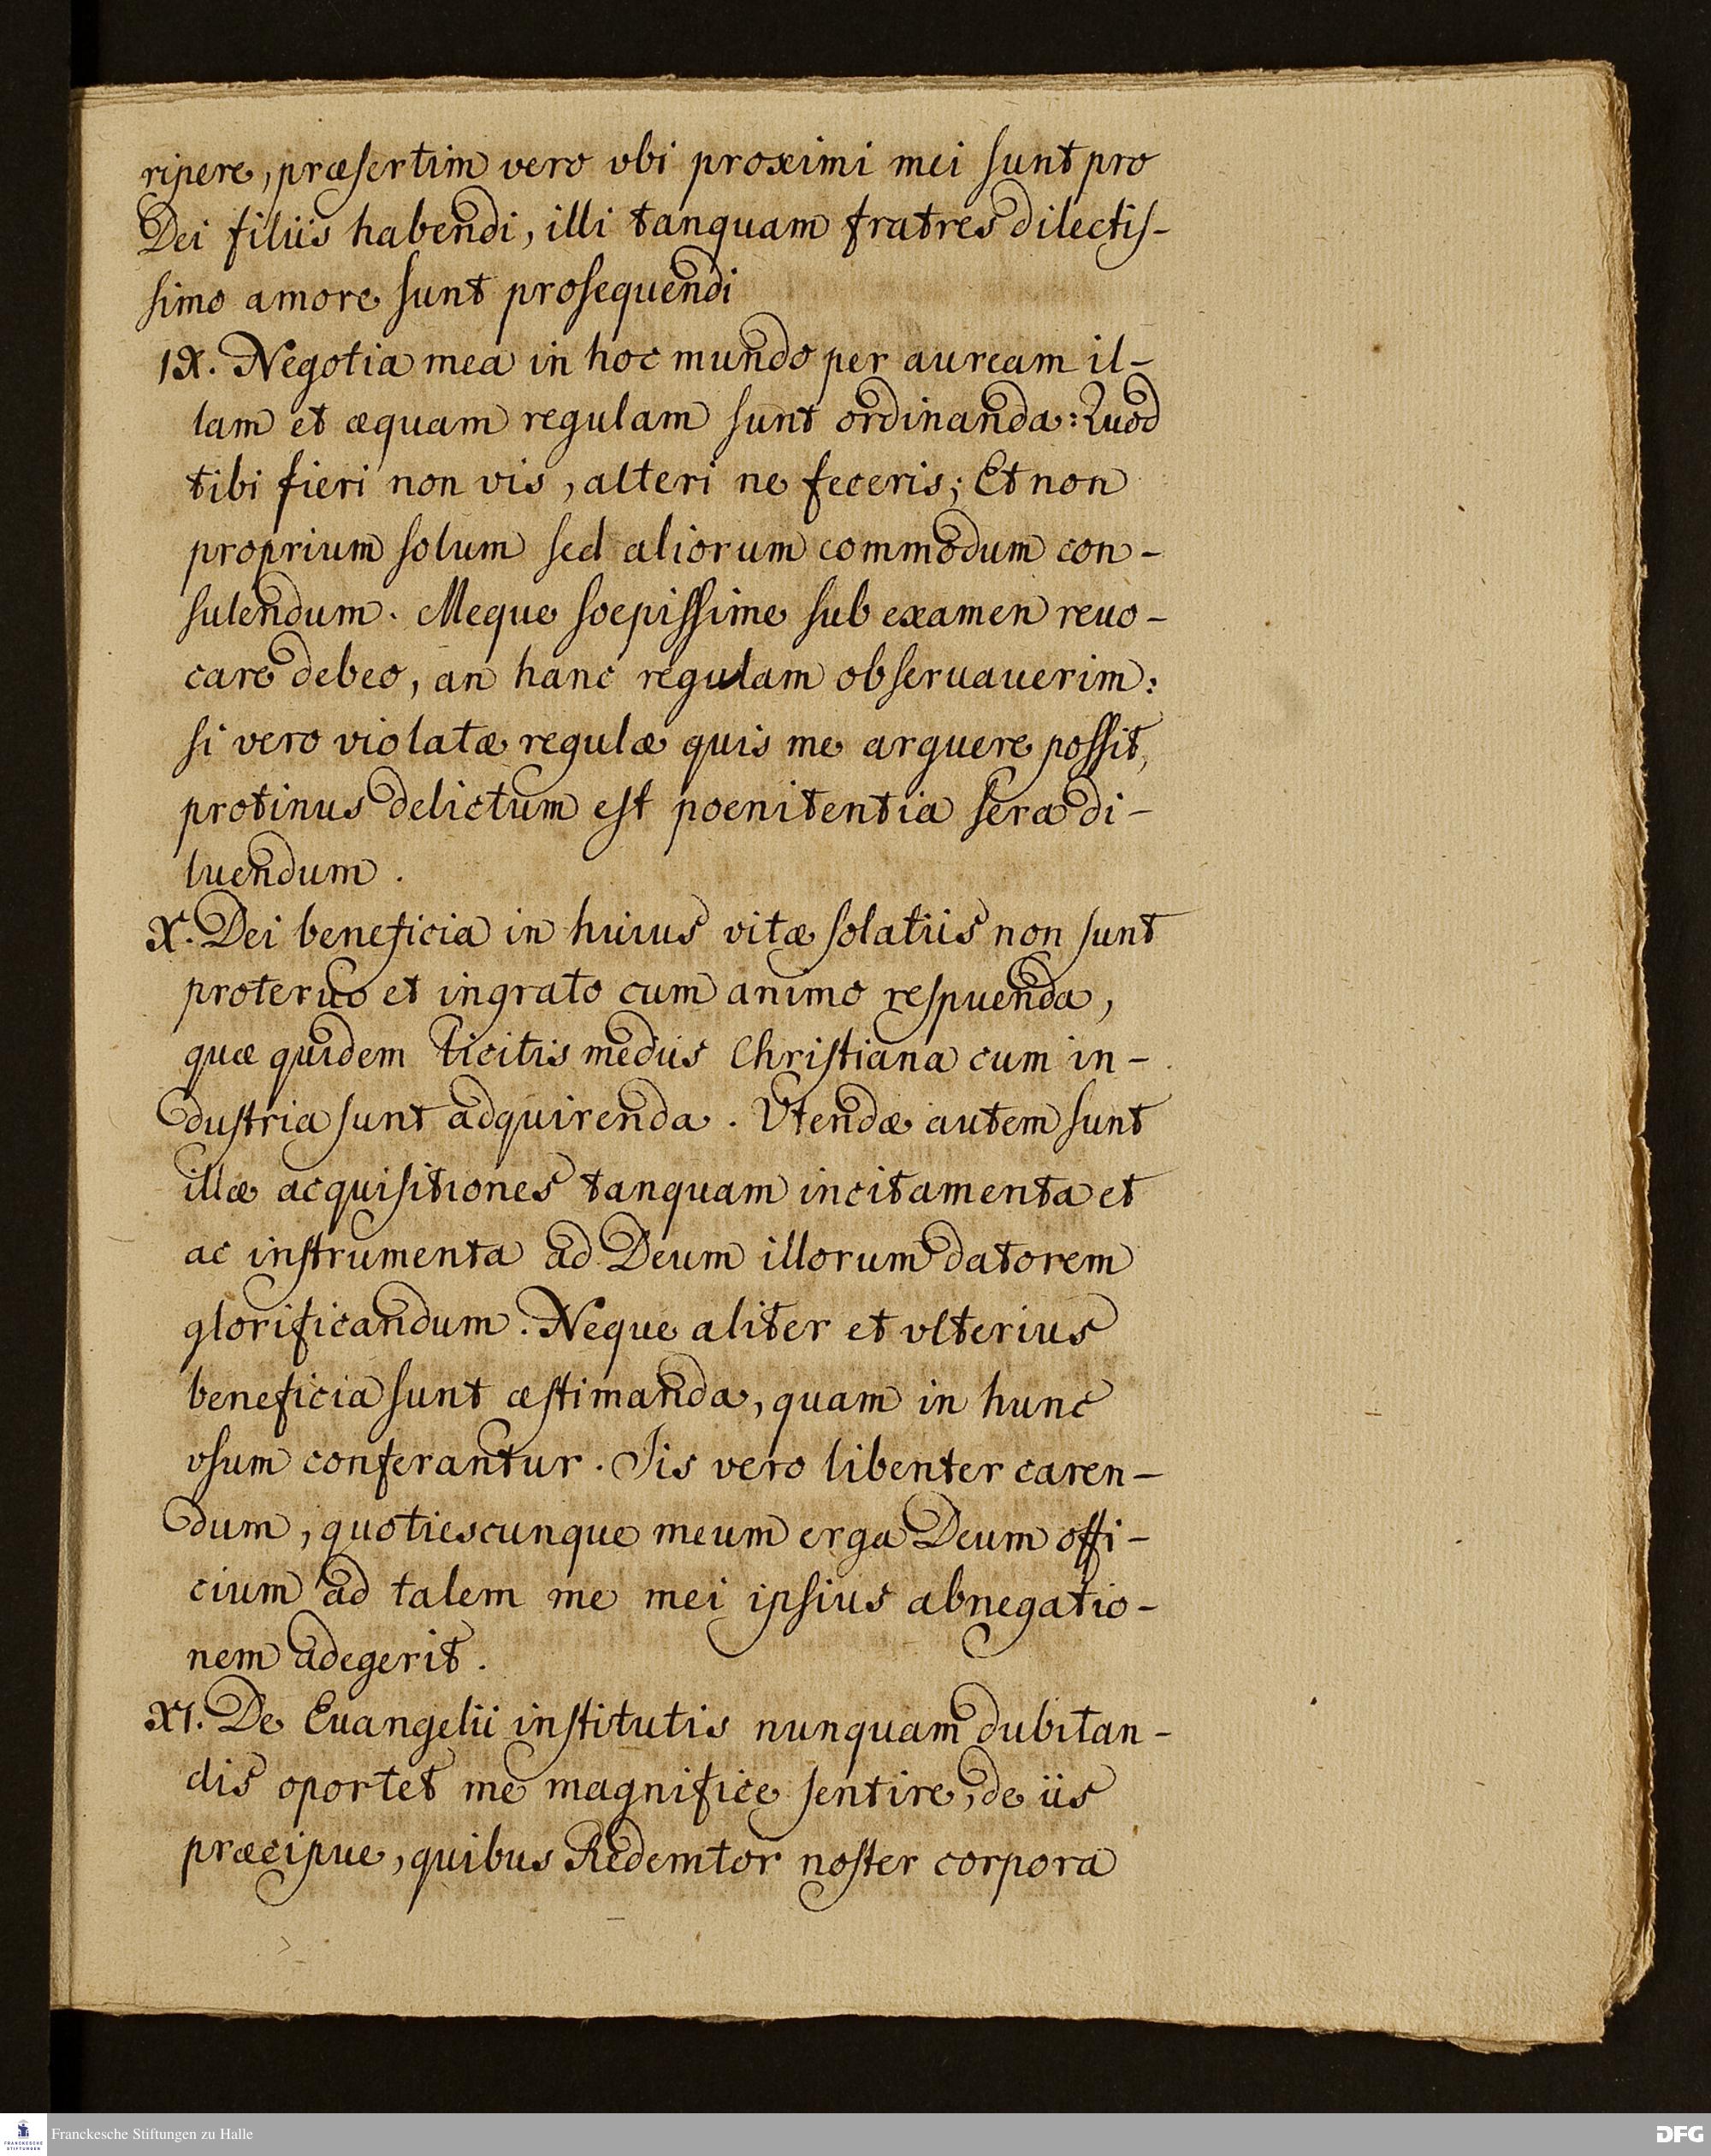 ripere, præsertim vero vbi proximi mei sunt pro
Dei filiis habendi, illi tanquam fratres dilectis-
simo amore sunt prosequendi
IX. Negotia mea in hoc mundo per auream il-
lam et æquam regulam sunt ordinanda: Quod
tibi fieri non vis, alteri ne feceris; Et non
proprium solum sed aliorum commodum con-
sulendum. Meque sœpissime sub examen reuo-
care debeo, an hanc regulam obseruauerim:
si vero violatæ regulæ quis me arguere possit,
protinus delictum est poenitentia sera di-
luendum.
X. Dei beneficia in huius vitæ solatiis non sunt
proteruo et ingrato cum animo respuenda,
quæ quidem licitis mediis Christiana cum in-
dustria sunt adquirenda. Vtendæ autem sunt
illæ acquisitiones tanquam incitamenta et
ac instrumenta ad Deum illorum datorem
glorificandum. Neque aliter et vlterius
beneficia sunt æstimanda, quam in hunc
vsum conferantur. Iis vero libenter caren-
dum, quotiescunque meum erga Deum offi-
cium ad talem me mei ipsius abnegatio-
nem adegerit.
XI. De Euangelii institutis nunquam dubitan-
dis oportet me magnifice sentire, de iis
præcipue, quibus Redemtor noster corpora
Franckesche Stiftungen zu Halle
FRANCKESCHE
STIFTUNGEN
DFG